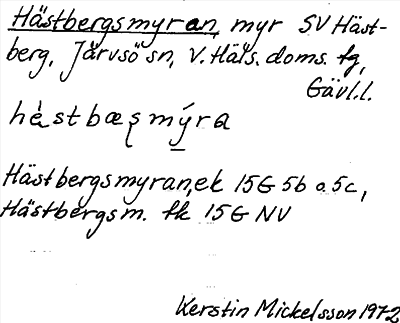 Hästbergsmyran, myr SV Häst-
berg, Järvsö sn, V. Häls. doms. tg,
Gävl.l.
hèstbæʂmýra
Hästbergsmyran, ek 15G 5b o. 5c,
Hästbergsm. tk 15G NV
Kerstin Mickelsson 1972